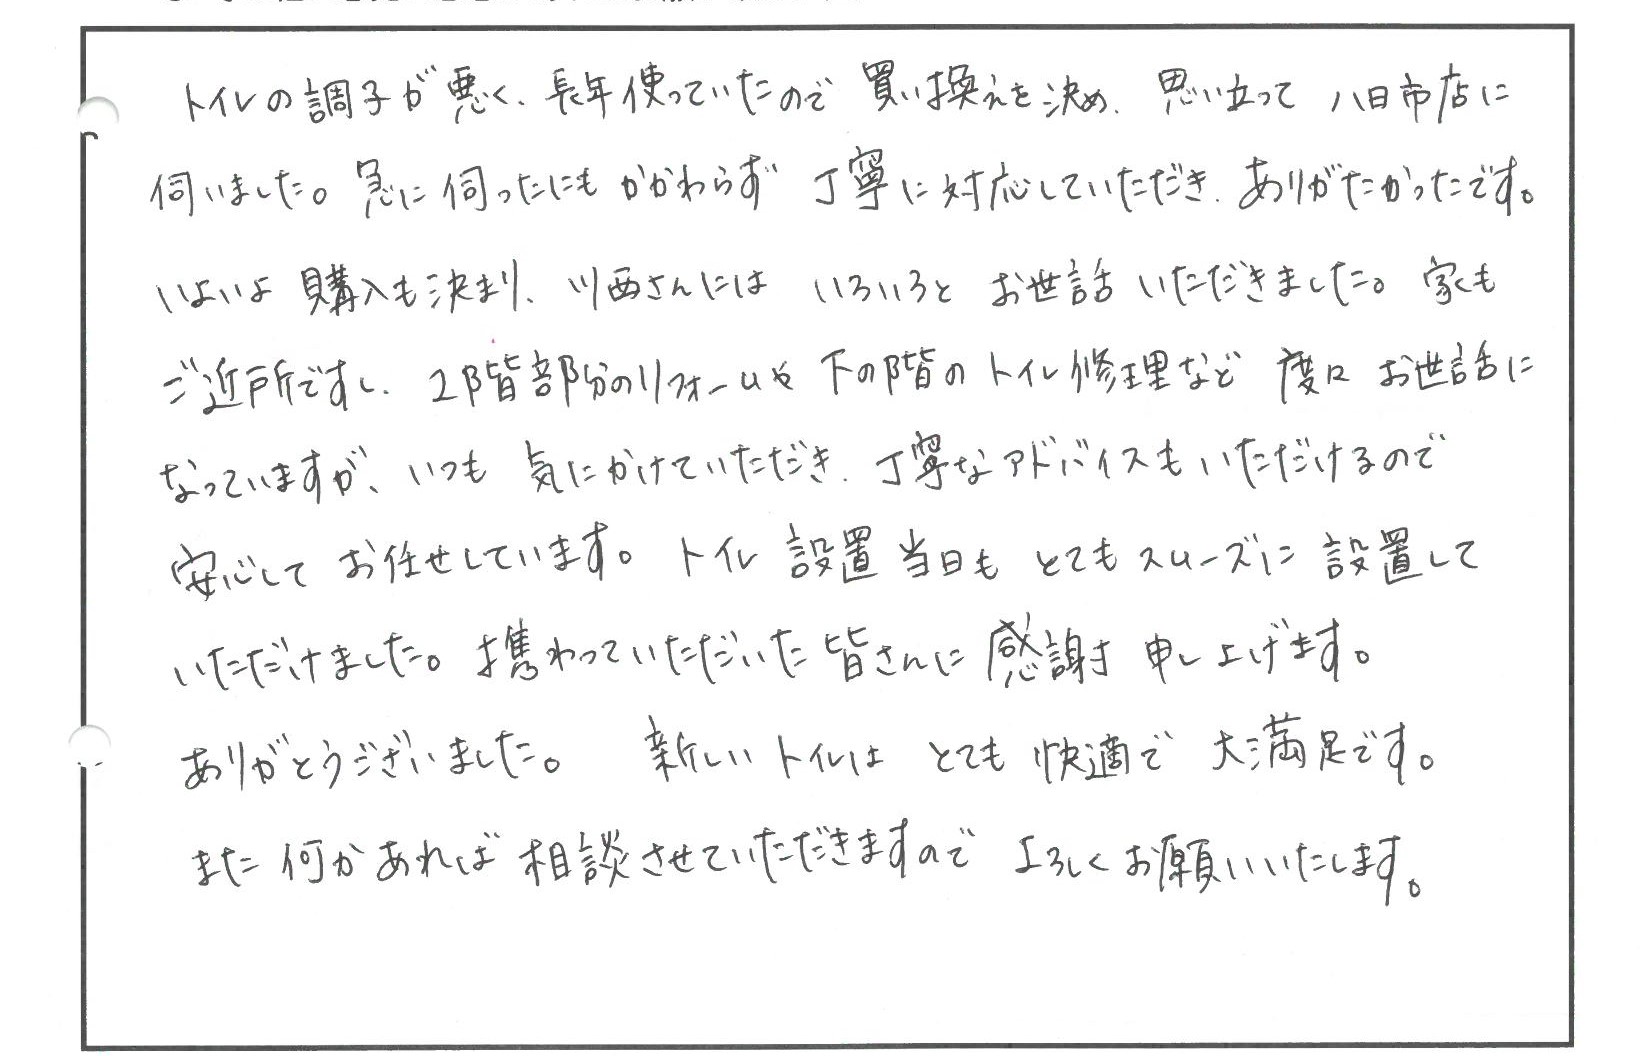 トイレの調子が悪く、長年使っていたので買い換えを決め、思い立って八日市店に
伺いました。急に伺ったにもかかわらず丁寧に対応していただき、ありがたかったです。
いよいよ購入も決まり、川西さんにはいろいろとお世話いただきました。家も
ご近所ですし、2階部分のリフォームや下の階のトイレ修理など度々お世話に
なっていますが、いつも気にかけていただき、丁寧なアドバイスもいただけるので
安心してお任せしています。トイレ設置当日もとてもスムーズに設置して
いただけました。携わっていただいた皆さんに感謝申し上げます。
ありがとうございました。 新しいトイレはとても快適で大満足です。
また何かあれば相談させていただきますのでよろしくお願いいたします。